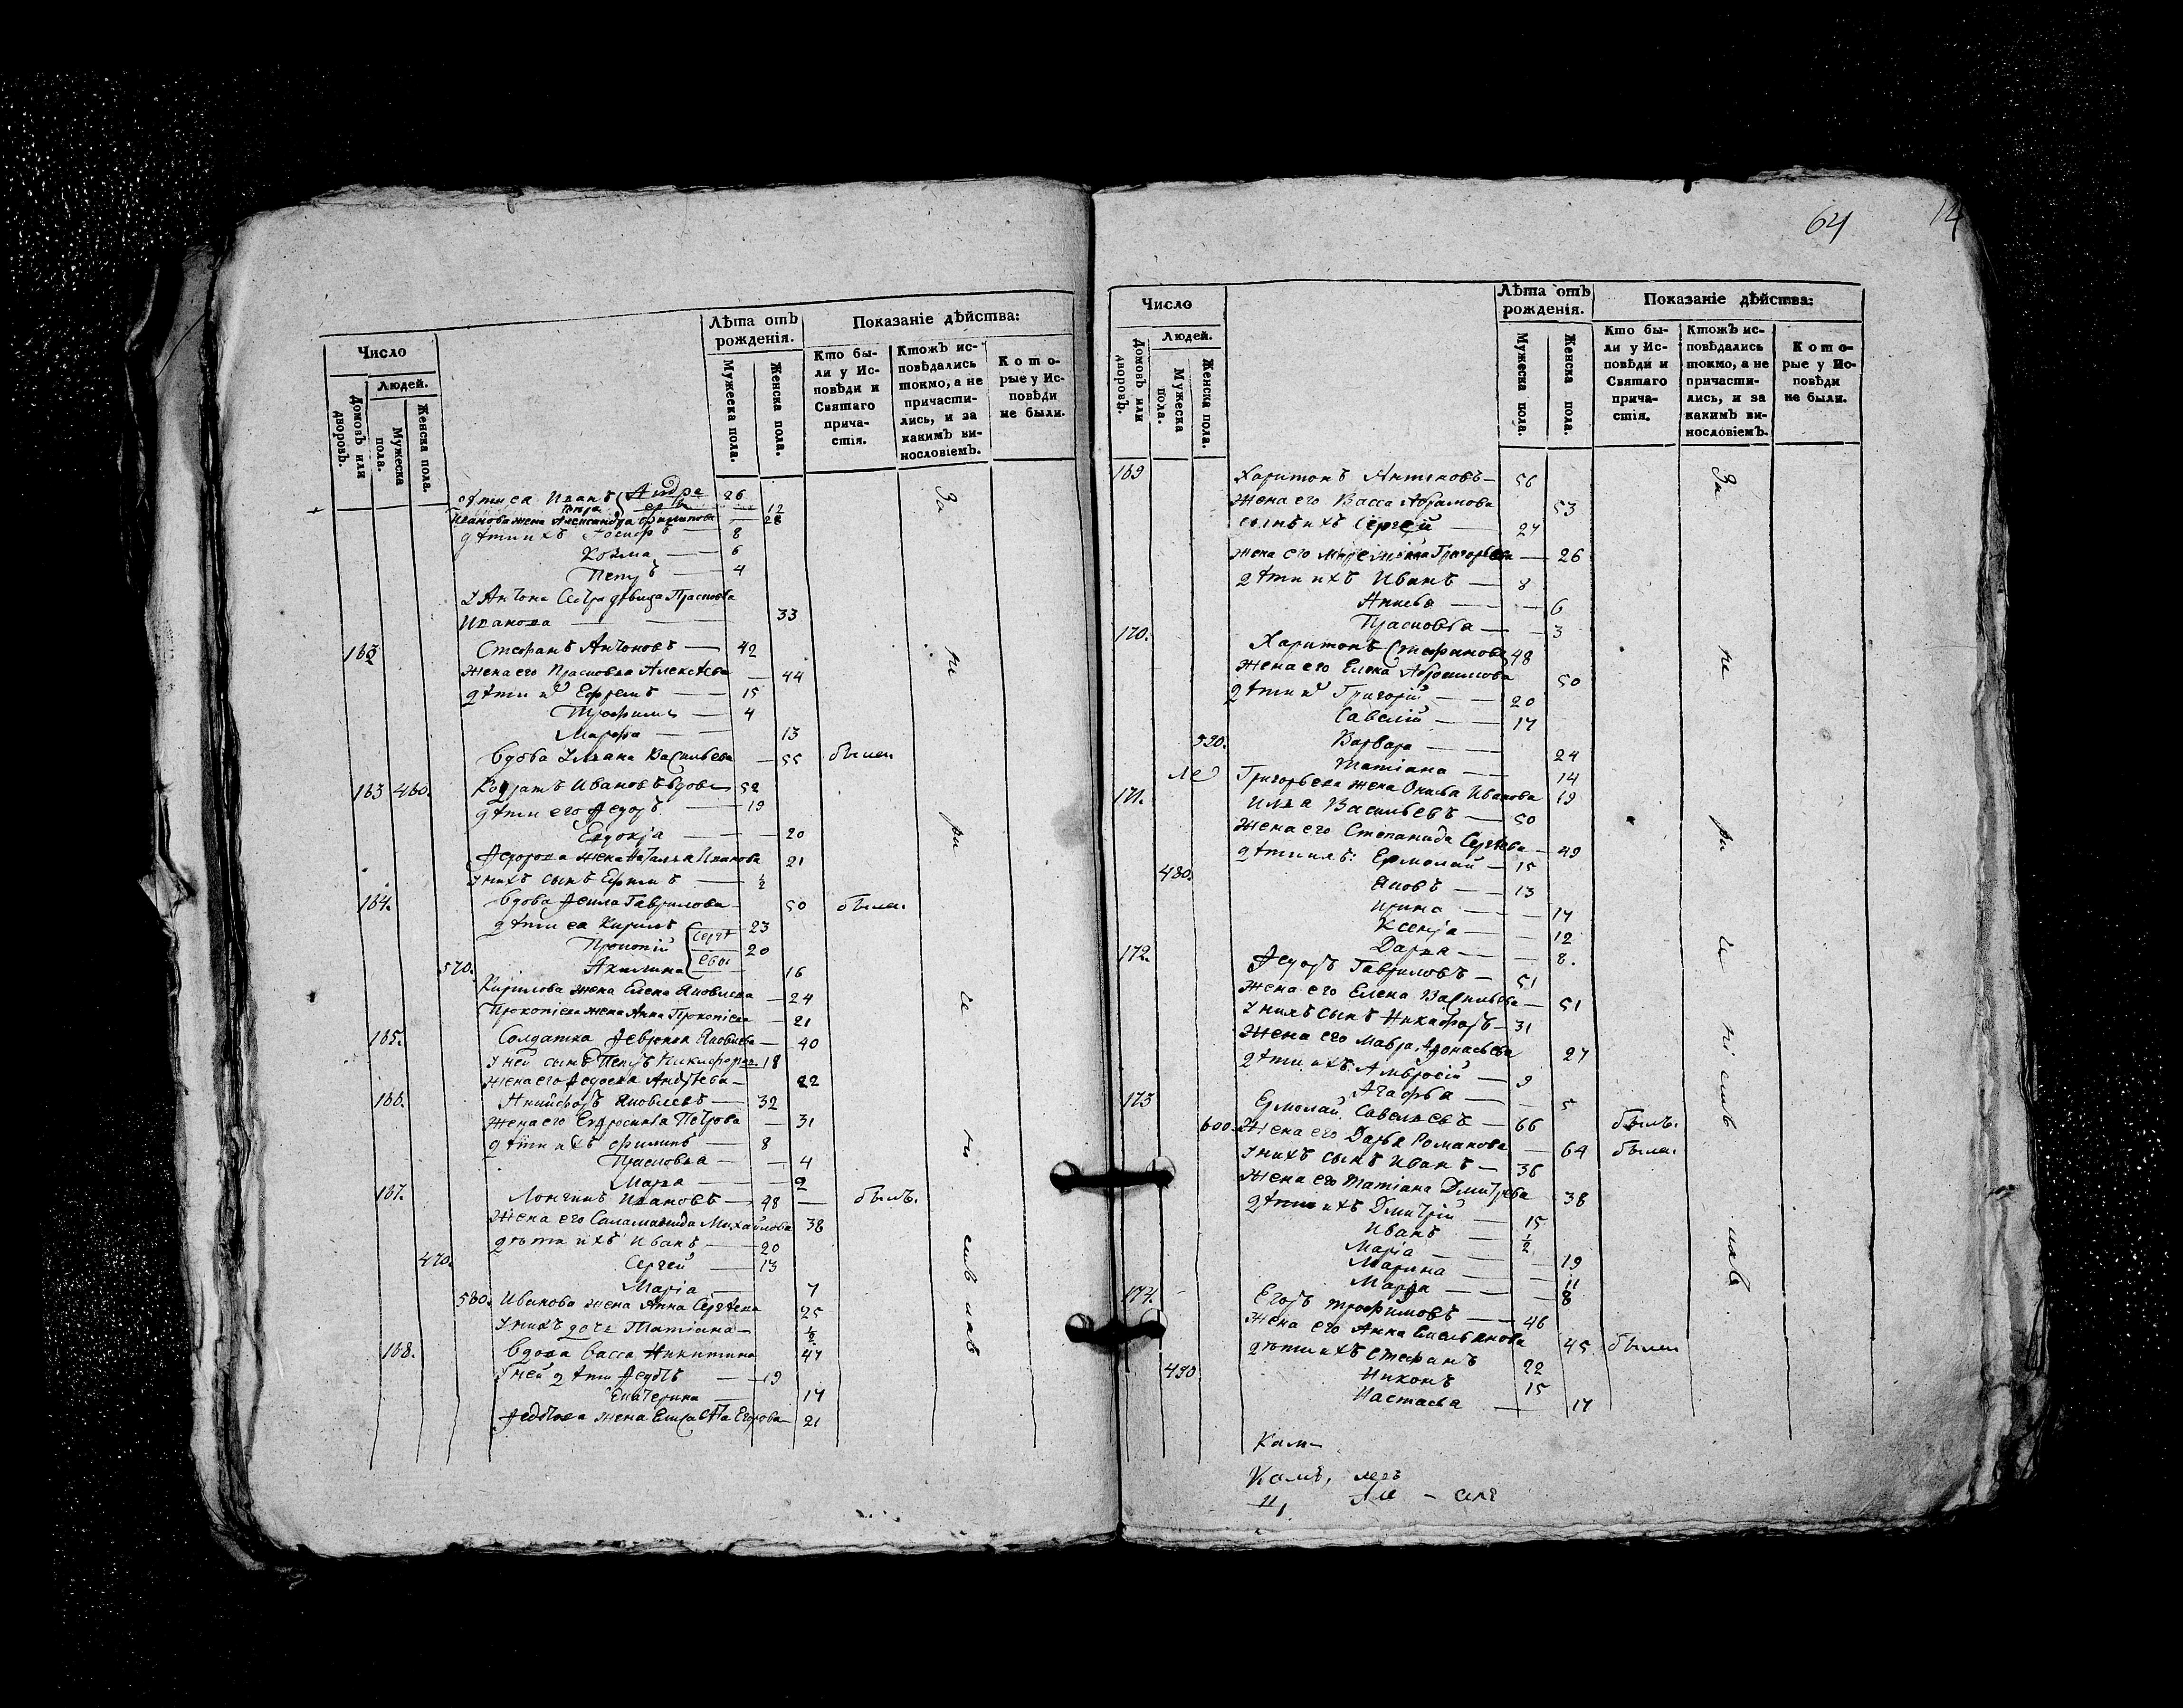 Число
Людей.
Домовъ или дворовъ.
Мужеска пола.
Женска пола.
Лѣта отъ рожденія.
Мужеска пола.
Женска пола.
Показаніе дѣйства:
Кто бы-
ли у Ис-
повѣди и
Святаго
прича-
стія.
Ктожъ ис-
повѣдались
токмо, а не
причасти-
лись, и за
какимъ ви-
нословіемъ.
Кото-
рые у Ис-
повѣди
не были.
дѣти ея Иванъ Андре 26
ева 12
Иванова жена Александра Филипова — 28
дѣти ихъ Іосифъ — 8
Козма — 6
Петръ — 4
У Антона Сестра дѣвица Прасковья
Иванова — 33
162 Стефанъ Антоновъ — 42
жена его Прасковья Алексѣева — 44
дѣти их Ефремъ — 15
Трофимъ — 4
Марфа — 13
вдова Ульяна Васильева — 55 была.
163 460. Кодратъ Ивановъ вдовъ 52
дѣти его Федоръ — 19
Евдокія — 20
Федорова жена Наталья Иванова 21
у нихъ сынъ Ефимъ — ½
164. вдова Фекла Гаврилова — 50 была.
дѣти ея Кирилъ Сергѣ 23
Прокопій евы 20
570. Акилина 16
Кирилова жена Елена Яковлева — 24
Прокопіева жена Анна Прокопіева — 21
165. Солдатка Феврония Яковлева — 40
у ней сынъ Петръ Никифоровъ 18
жена его Федосья Андрѣева — 22
166. Никифоръ Яковлевъ — 32
жена его Евфросинья Петрова — 31
дѣти ихъ Филипъ — 8
Прасковья — 4
Марья — 2
167. Лонгинъ Ивановъ — 48 — былъ.
жена его Саламанида Михайлова 38
дѣти ихъ Иванъ — 20
470. Сергей — 13
Марія — 7
580. Иванова жена Анна Сергѣева 25
у нихъ дочь Татіана — ½
168. вдова Васса Никитина 47
у ней дѣти Федотъ — 19
Екатерина — 17
Федотова жена Елисавѣта Егорова — 21
За не при че ні емъ ихъ
64
14
Число
Людей.
Домовъ или дворовъ.
Мужеска пола.
Женска пола.
Лѣта отъ рожденія.
Мужеска пола.
Женска пола.
Показаніе дѣйства:
Кто бы-
ли у Ис-
повѣди и
Святаго
прича-
стія.
Ктожъ ис-
повѣдались
токмо, а не
причасти-
лись, и за
какимъ ви-
нословіемъ.
Кото-
рые у Ис-
повѣди
не были.
169 Харитонъ Антоновъ — 56
жена его Васса Абрамова 53
сынъ ихъ Сергей — 27
жена его Григорьева — 26
дѣти ихъ Иванъ — 8
Акилина — 6
Прасковья — 3
170. Харитонъ Стефановъ 48
жена его Елена Абросимова 50
дѣти их Григорій — 20
Савелій — 17
590. Варвара — 24
Татіана — 14
Григорьева жена Иванова 19
171. Илья Васильевъ — 50
жена его Степанида Сергѣева — 49
дѣти ихъ: Ермолай — 15
480. Яковъ — 13
Ирина — 17
Ксенія — 12
Дарья — 8.
172. Федоръ Гавриловъ — 51
жена его Елена Васильева — 51
у нихъ сынъ Никифоръ — 31
жена его Мавра Афонасьева 27
дѣти ихъ Амвросій — 9
Агафья — 5
173 Ермолай Савельевъ — 66 былъ.
600. жена его Дарья Романова — 64 была.
у нихъ сынъ Иванъ — 36
жена его Татіана Дмитрева 38
дѣти ихъ Дмитрій — 15
Иванъ — ½
Марія — 19
Марина — 11
Марфа — 8
174. Егоръ Трофимовъ — 46
жена его Анна Емельянова 45 была
дѣти ихъ Стефанъ 22
490 Никонъ 15
Настасья — 17
За не при че ні емъ ихъ.